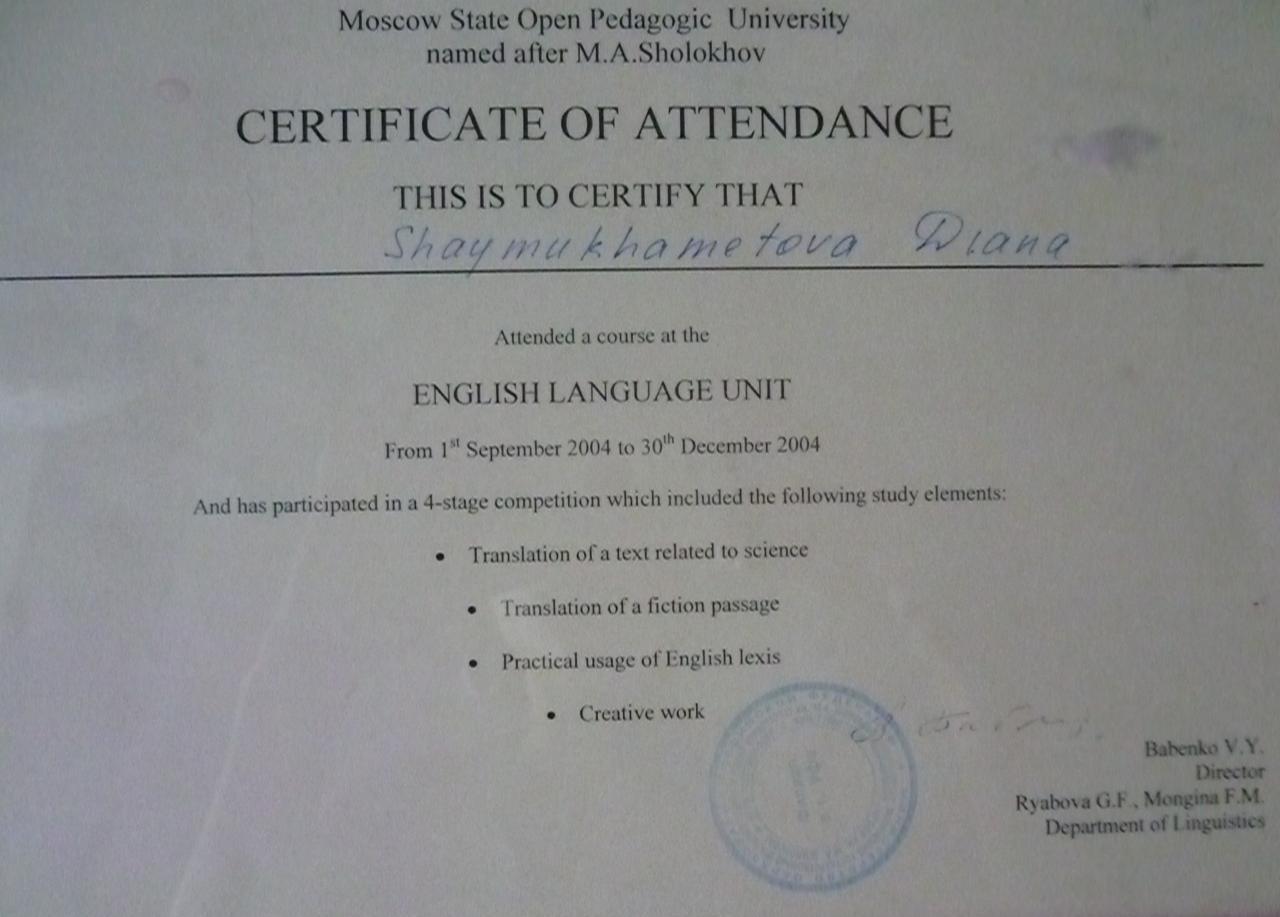 Moscow State Open Pedagogic University
named after M.A.Sholokhov
CERTIFICATE OF ATTENDANCE
THIS IS TO CERTIFY THAT
Shaymukhametova Diana
Attended a course at the
ENGLISH LANGUAGE UNIT
From 1st September 2004 to 30th December 2004
And has participated in a 4-stage competition which included the following study elements:
• Translation of a text related to science
• Translation of a fiction passage
• Practical usage of English lexis
• Creative work
Babenko V.Y.
Director
Ryabova G.F., Mongina F.M.
Department of Linguistics